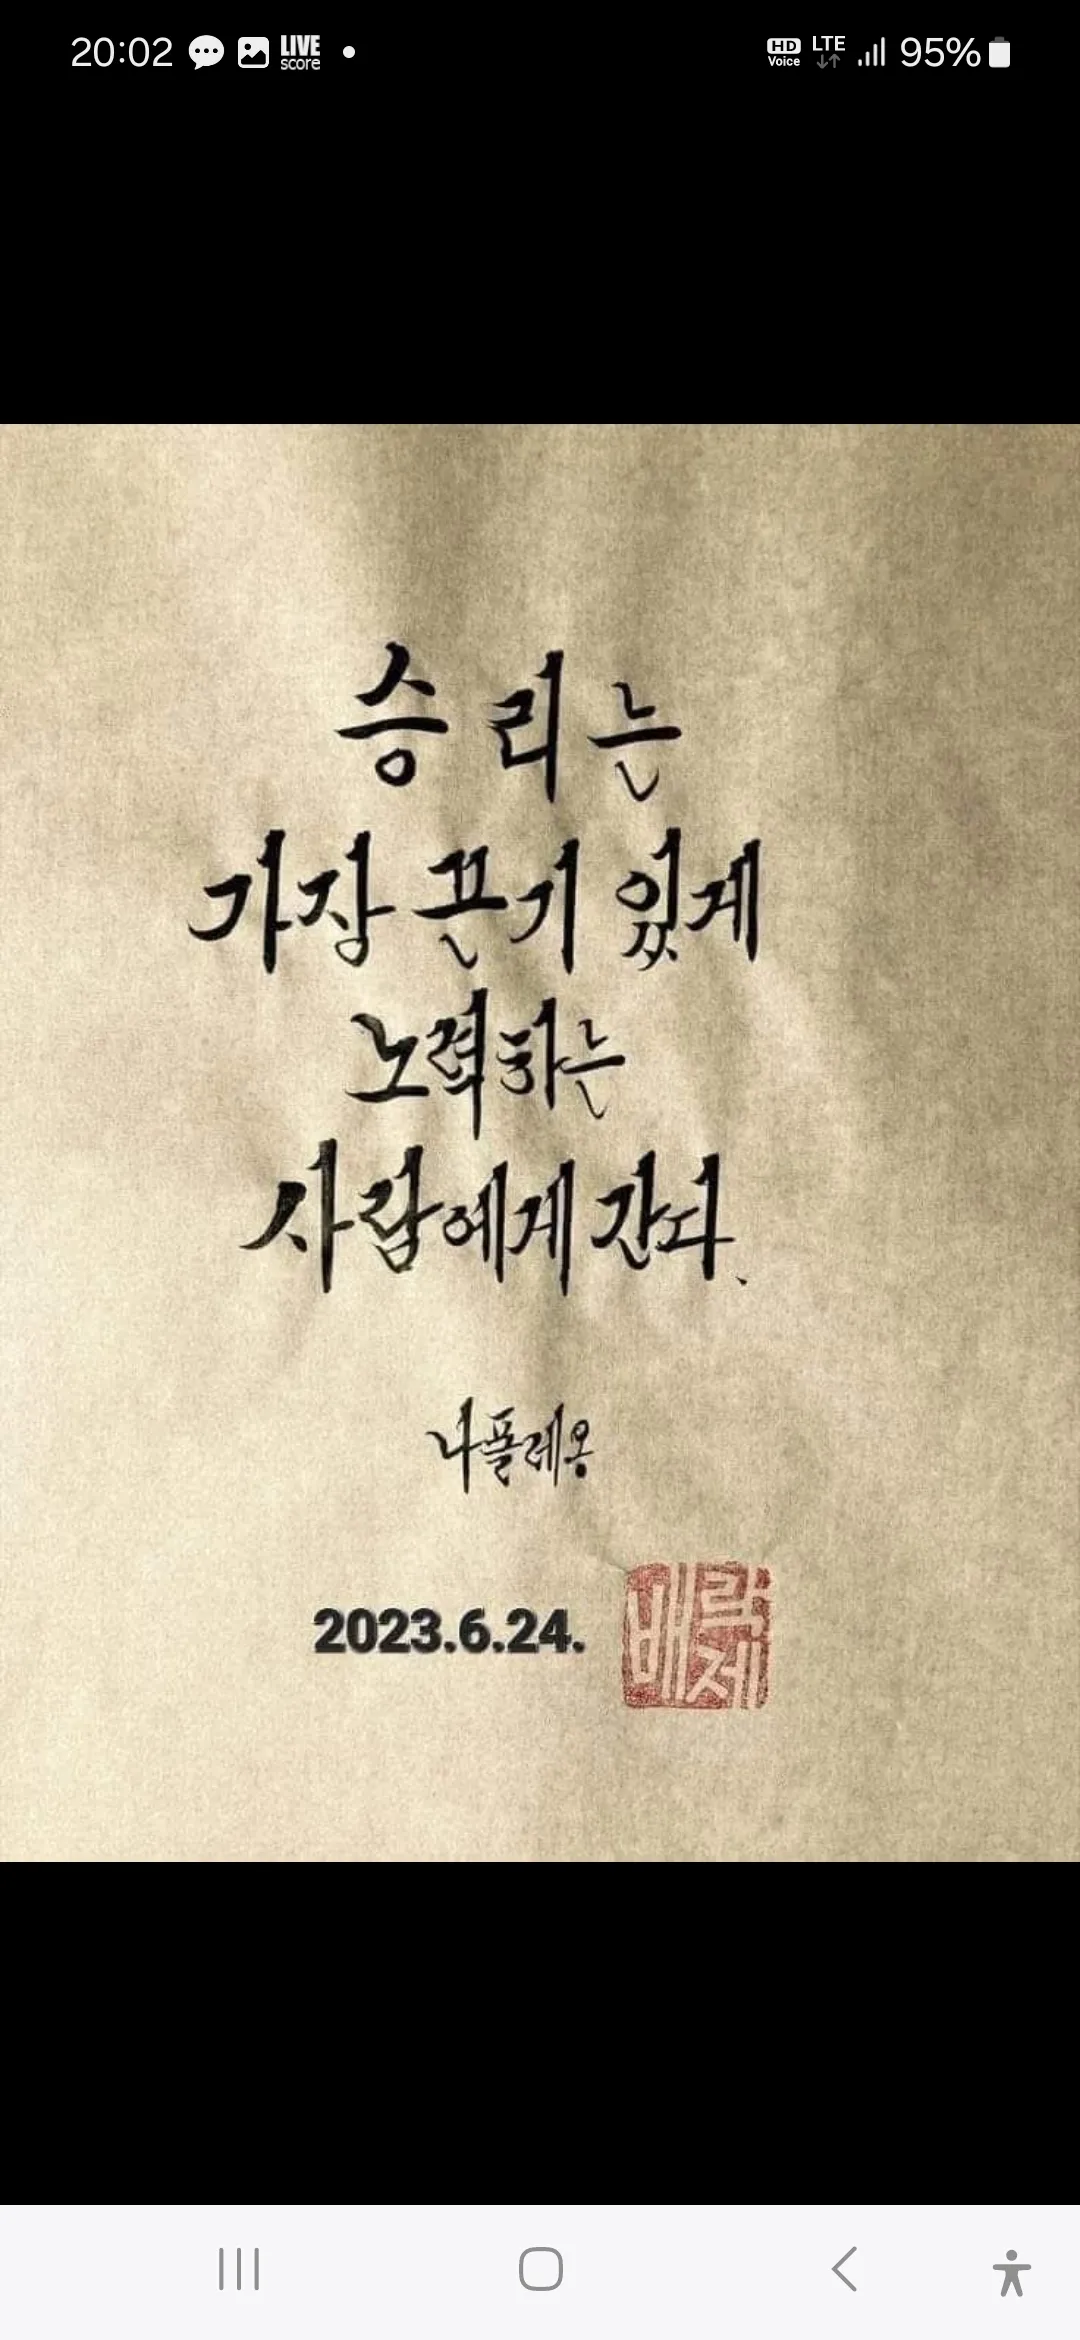 20:02 LIVE score HD Voice LTE 95%
승리는
가장 끈기 있게
노력하는
사람에게 간다.
나폴레옹
2023.6.24.
배락제